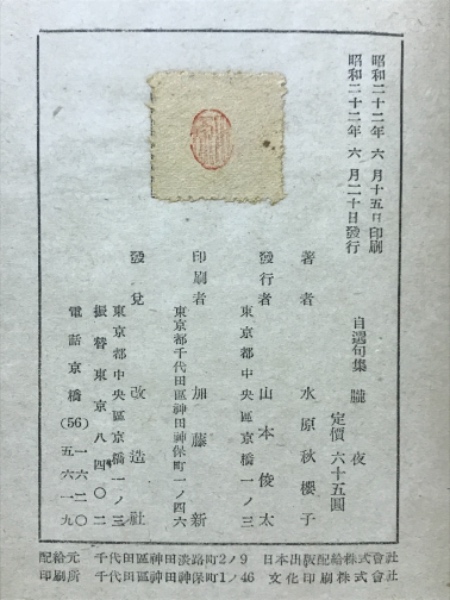 昭和二十二年 六月十五日印刷
昭和二十二年 六月二十日發行
自選句集 朧夜
定價 六十五圓
著者 水原秋櫻子
發行者 山本俊太
東京都中央區京橋一ノ三
印刷者 加藤新
東京都千代田區神田神保町一ノ四六
發兌 改造社
東京都中央區京橋一ノ三
振替東京八四〇二
電話京橋(56)一六二〇 五六一九
配給元 千代田區神田淡路町2ノ9 日本出版配給株式會社
印刷所 千代田區神田神保町1ノ46 文化印刷株式會社